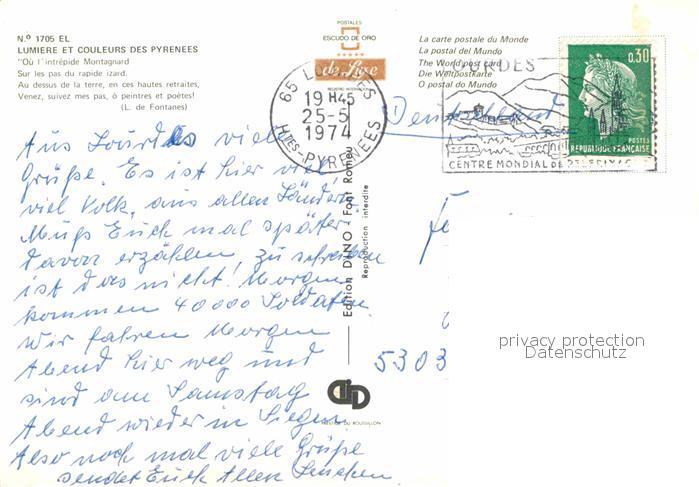 N.º 1705 EL
LUMIERE ET COULEURS DES PYRENEES
"Où l'intrépide Montagnard
Sur les pas du rapide izard.
Au dessus de la terre, en ces hautes retraites,
Venez, suivez mes pas, ô peintres et poètes!
(L. de Fontanes)
POSTALES
ESCUDO DE ORO
de Luxe
La carte postale du Monde
La postal del Mundo
The World post card
Die Weltpostkarte
O postal do Mundo
65 LOURDES
19H45
25-5
1974
HTES-PYRENEES
LOURDES
CENTRE MONDIAL DE PELERINAGE
0,30
POSTES
REPUBLIQUE FRANÇAISE
Deutschland
Aus Lourdes viele
Grüße. Es ist hier viel
viel Volk, aus allen Ländern.
Muß Euch mal später
davon erzählen, zu schreiben
ist das nicht! Morgen
kommen 40000 Soldaten.
Wir fahren Morgen
Abend hier weg und
sind am Samstag
Abend wieder in Siegen
Also noch mal viele Grüße
sendet Euch Allen
Edition DINO - Font Romeu
Reproduction interdite
5303
privacy protection
Datenschutz